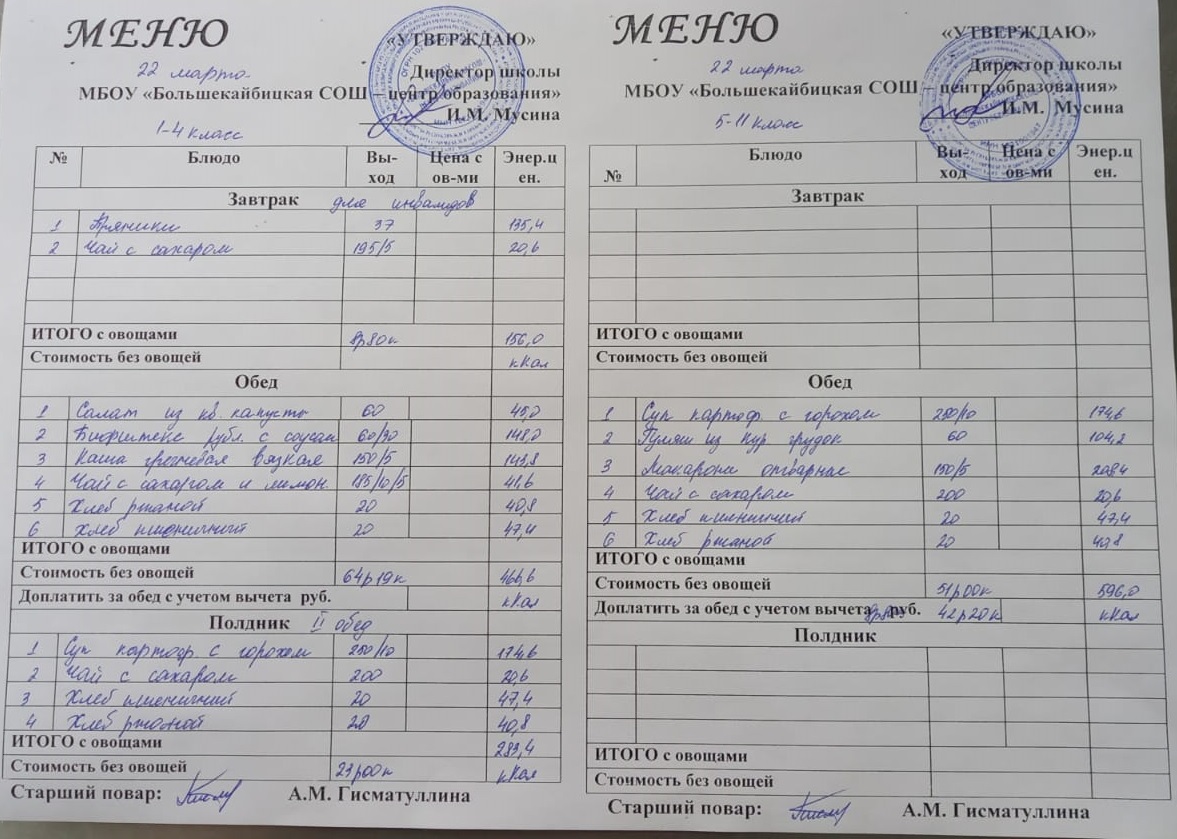 МЕНЮ
«УТВЕРЖДАЮ»
22 марта
Директор школы
МБОУ «Большекайбицкая СОШ – центр образования»
И.М. Мусина
1-4 класс
№ Блюдо Вы-ход Цена с ов-ми Энер.ц ен.
Завтрак для инвалидов
1 Пряники 37 135,4
2 Чай с сахаром 195/5 20,6
ИТОГО с овощами 8р80к 156,0
Стоимость без овощей кКал
Обед
1 Салат из кв. капусты 60 45,0
2 Бифштекс рубл. с соусом 60/30 148,0
3 Каша гречневая вязкая 150/5 143,8
4 Чай с сахаром и лимон. 185/10/5 41,6
5 Хлеб ржаной 20 40,8
6 Хлеб пшеничный 20 47,4
ИТОГО с овощами
Стоимость без овощей 64р19к 466,6
Доплатить за обед с учетом вычета руб. кКал
Полдник II обед
1 Суп картоф. с горохом 250/10 174,6
2 Чай с сахаром 200 20,6
3 Хлеб пшеничный 20 47,4
4 Хлеб ржаной 20 40,8
ИТОГО с овощами 283,4
Стоимость без овощей 23р00к кКал
Старший повар: А.М. Гисматуллина
МЕНЮ
«УТВЕРЖДАЮ»
22 марта
Директор школы
МБОУ «Большекайбицкая СОШ – центр образования»
И.М. Мусина
5-11 класс
№ Блюдо Вы-ход Цена с ов-ми Энер.ц ен.
Завтрак
ИТОГО с овощами
Стоимость без овощей
Обед
1 Суп картоф. с горохом 250/10 174,6
2 Гуляш из кур грудок 60 104,2
3 Макароны отварные 150/5 208,4
4 Чай с сахаром 200 20,6
5 Хлеб пшеничный 20 47,4
6 Хлеб ржаной 20 40,8
ИТОГО с овощами
Стоимость без овощей 51р00к 596,0
Доплатить за обед с учетом вычета руб. 42р20к кКал
Полдник
ИТОГО с овощами
Стоимость без овощей
Старший повар: А.М. Гисматуллина